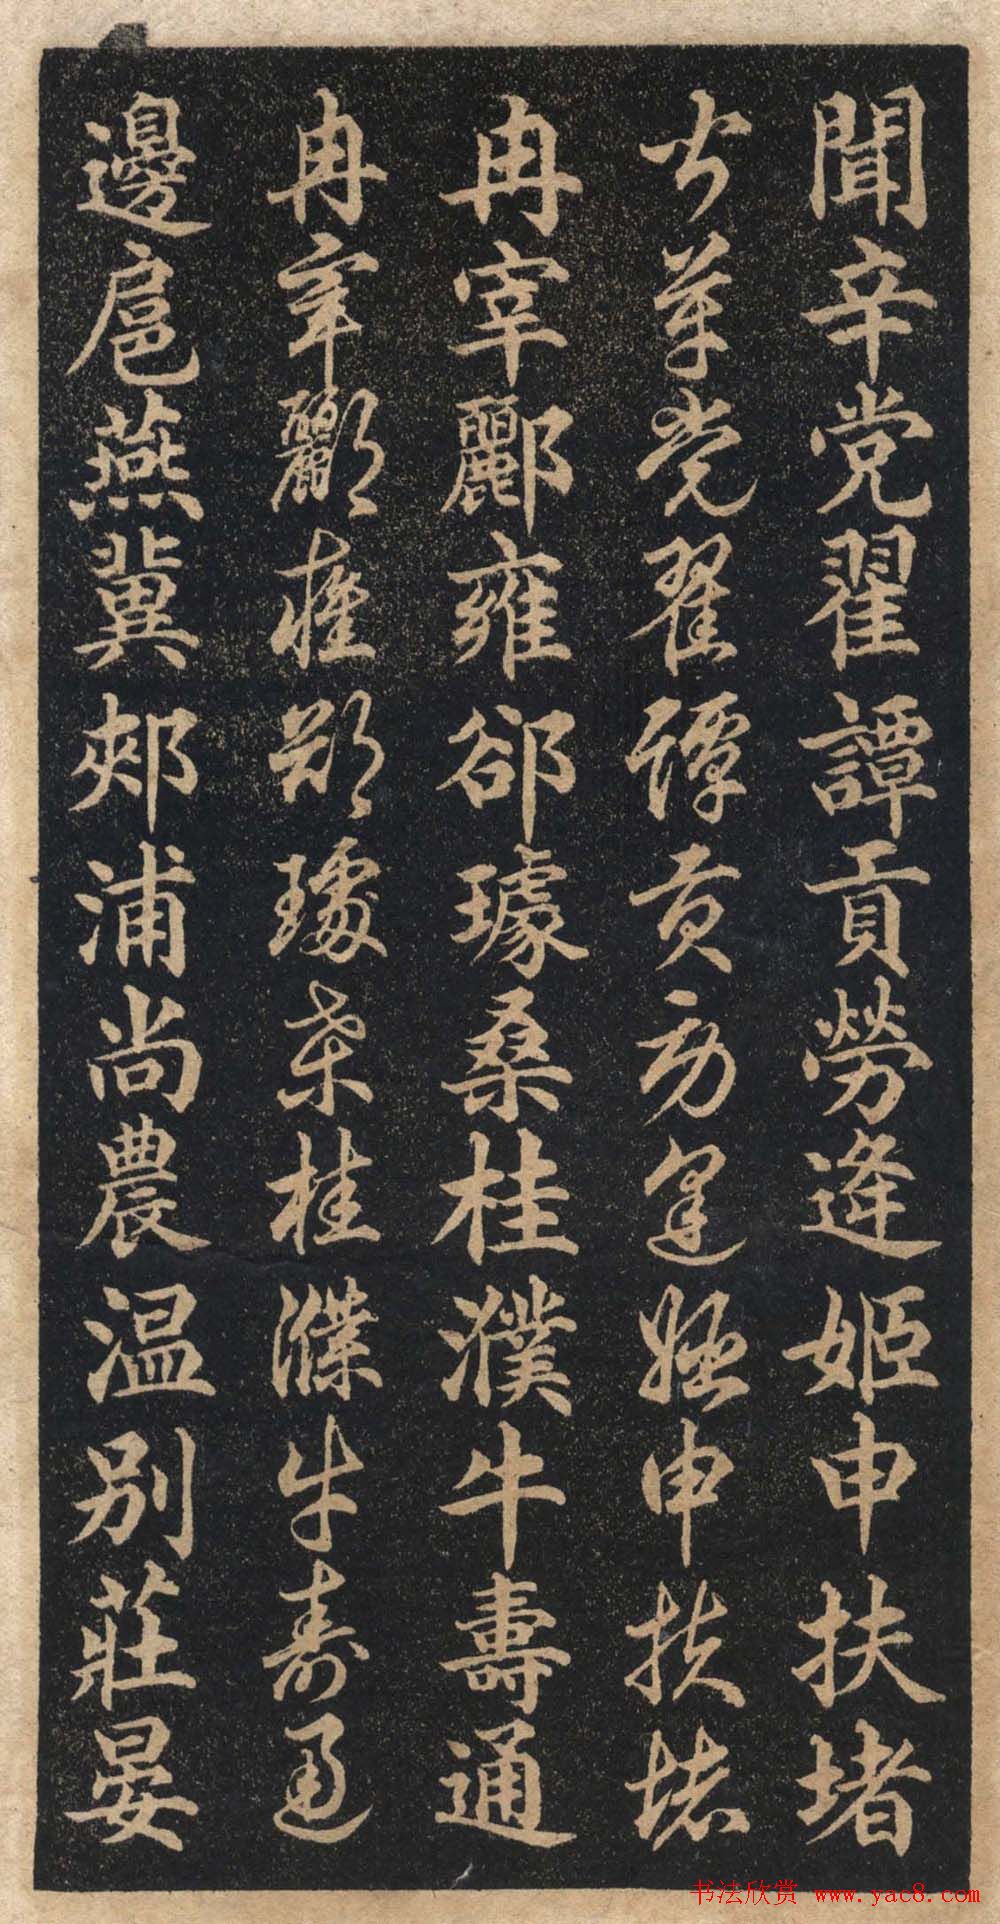 聞辛党翟譚貢勞逄姬申扶堵
聞辛党翟譚貢勞逄姬申扶堵
冉宰酈雍郤璩桑桂濮牛壽通
冉宰酈雍郤璩桑桂濮牛壽通
邊扈燕冀郟浦尚農温别莊晏
书法欣赏 www.yac8.com